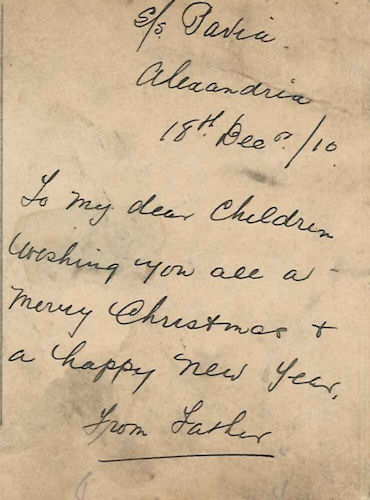 S/S. Pavia.
Alexandria
18th Decr/10.
To my dear Children
Wishing you all a
Merry Christmas +
a happy New Year,
From Father